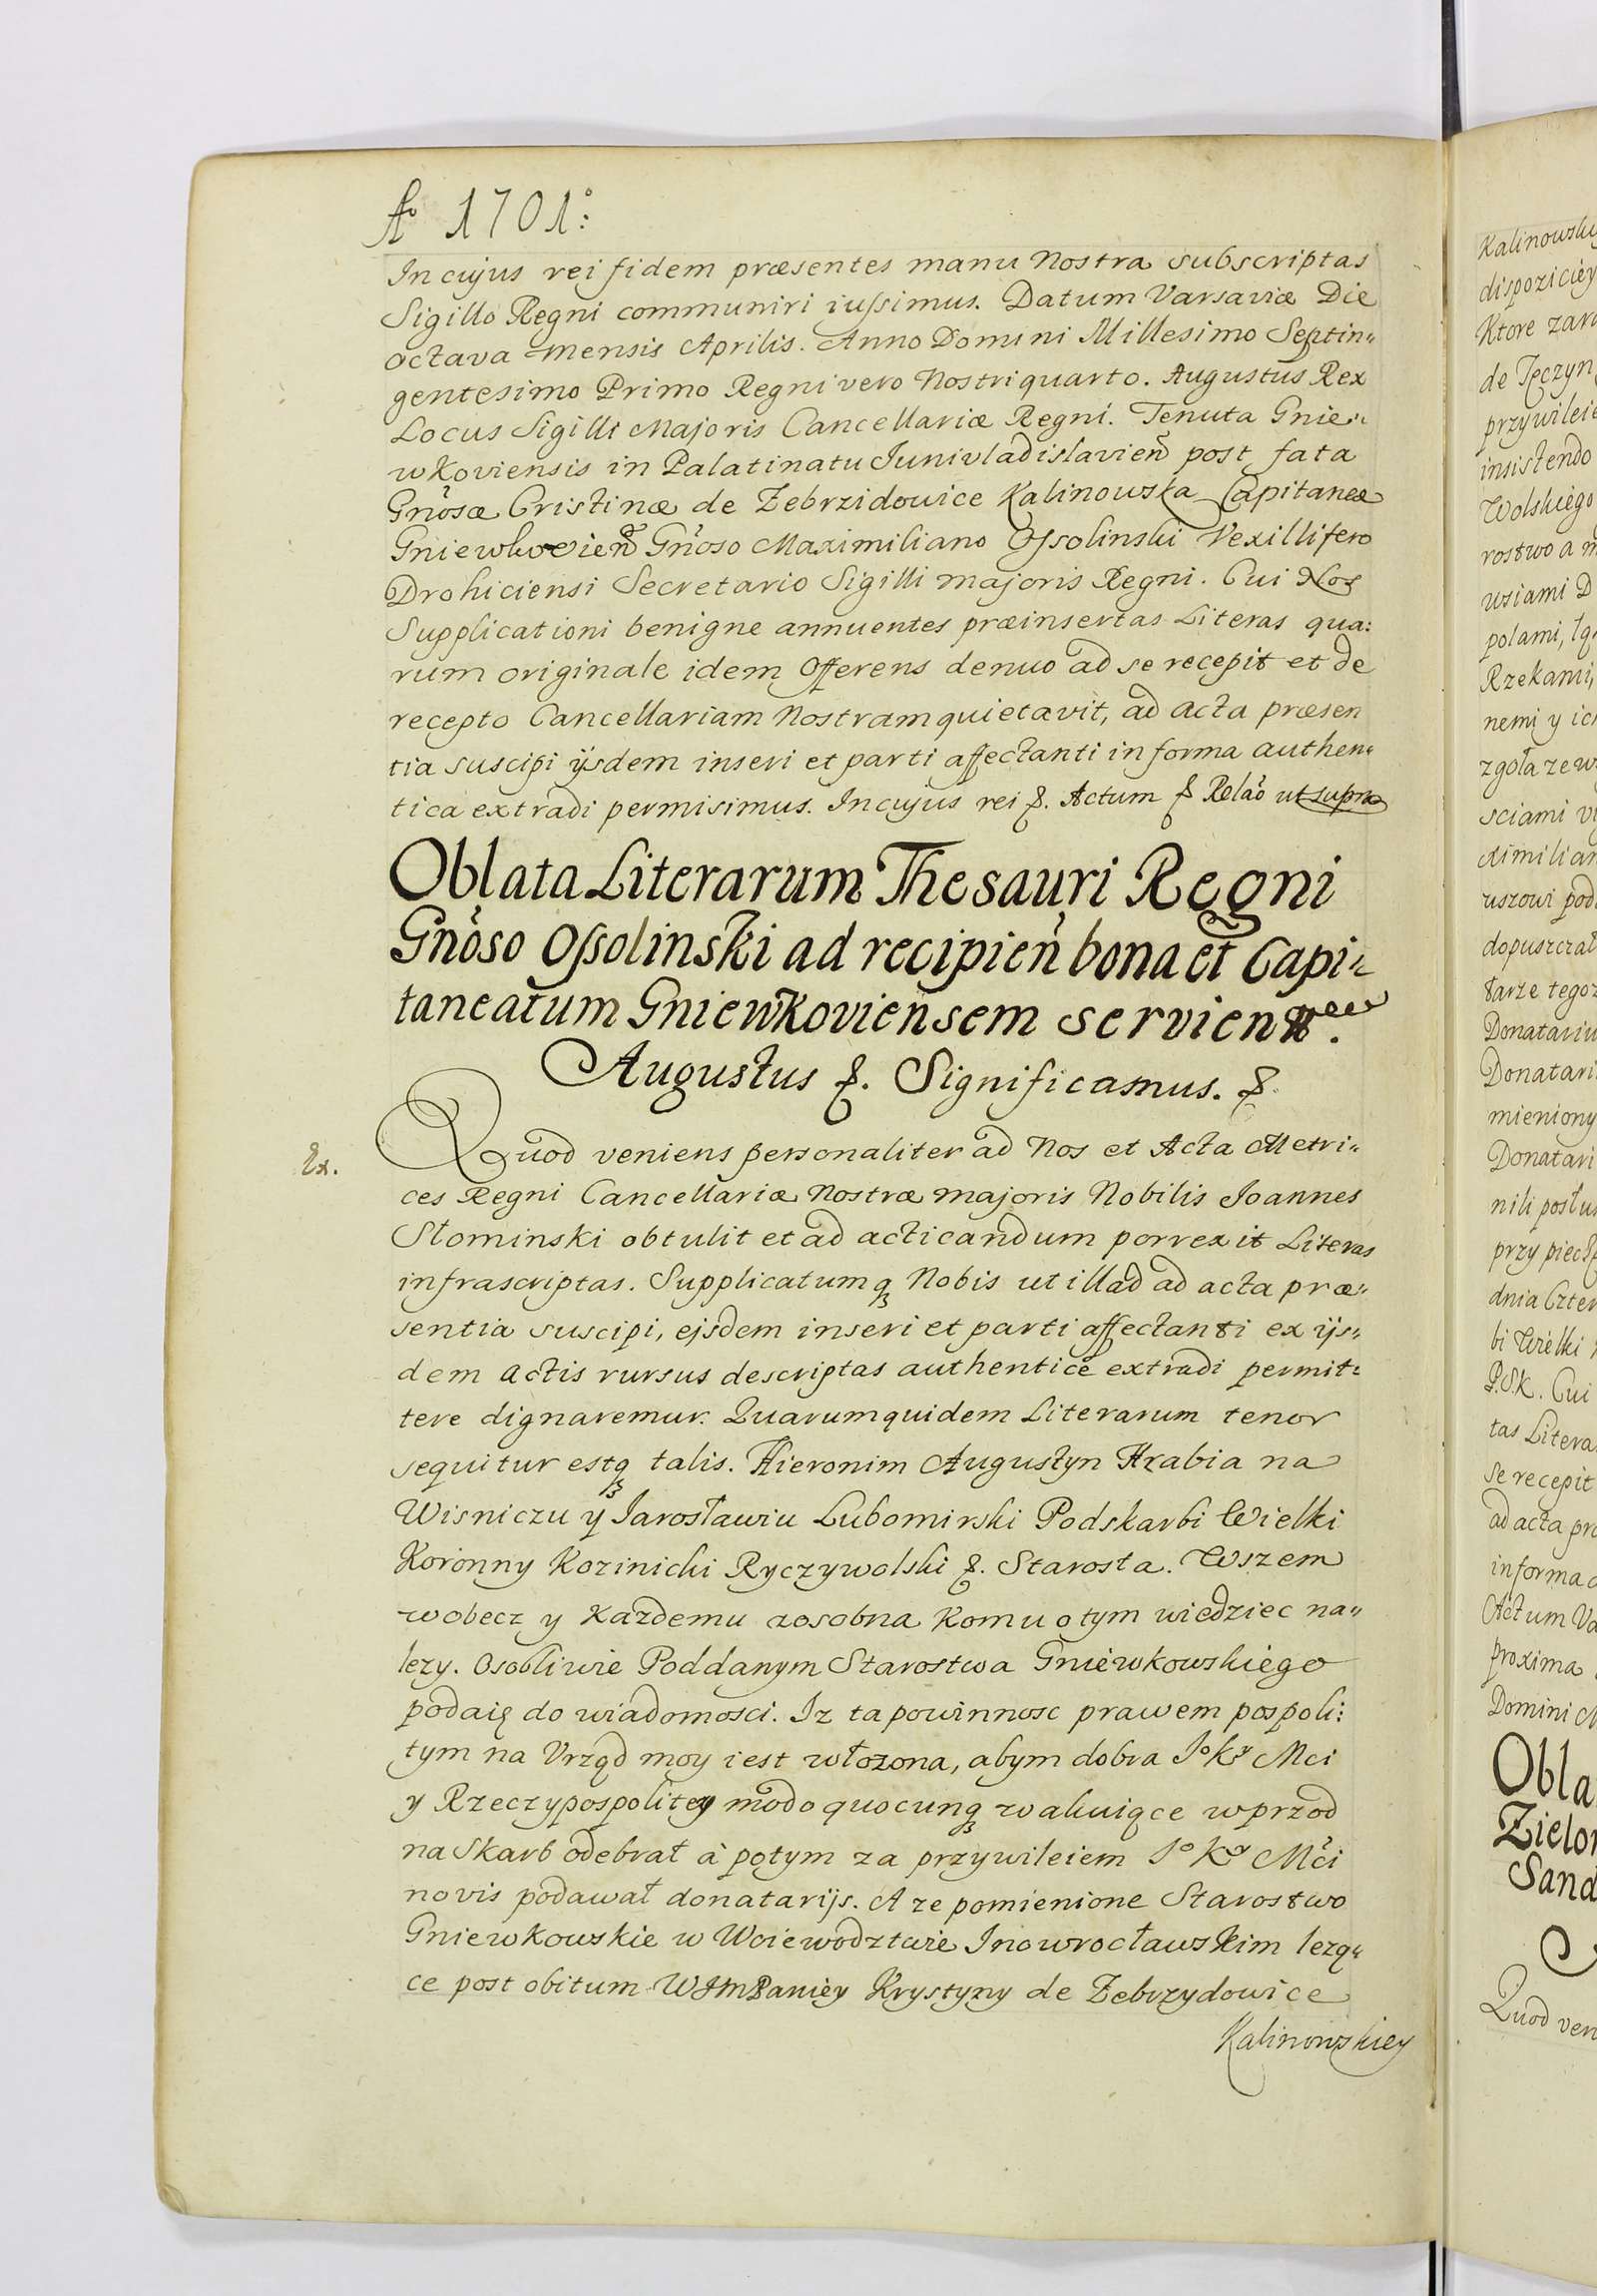 Aº 1701º:
In cujus rei fidem præsentes manu Nostra subscriptas
Sigillo Regni communiri iussimus. Datum Varsaviæ Die
octava mensis Aprilis. Anno Domini Millesimo Septin„
gentesimo Primo Regni vero Nostri quarto. Augustus Rex
Locus Sigilli Majoris Cancellariæ Regni. Tenuta Gnie„
wkoviensis in Palatinatu Junivladislavien̄ post fata
Gnōsæ Cristinæ de Zebrzidowice Kalinowska Capitaneæ
Gniewkovien̄ Gnōso Maximiliano Ossolinski Vexillifero
Drohiciensi Secretario Sigilli majoris Regni. Cui Nos
Supplicationi benigne annuentes præinsertas Literas qua:
rum originale idem Offerens denuo ad se recepit et de
recepto Cancellariam Nostram quietavit, ad acta præsen
tia suscipi ijsdem inseri et parti affectanti in forma authen„
tica extradi permisimus. In cujus rei &. Actum & Relāo ut supra
Oblata Literarum Thesauri Regni
Gnōso Ossolinski ad recipien̄ bona et Capi„
taneatum Gniewkoviensem servien
Augustus &. Significamus. &
Ex.
Quod veniens personaliter ad Nos et Acta Metri„
ces Regni Cancellariæ Nostræ majoris Nobilis Joannes
Słominski obtulit et ad acticandum porrexit Literas
infrascriptas. Supplicatumq Nobis ut illad ad acta præ„
sentia suscipi, ejsdem inseri et parti affectanti ex ijs„
dem actis rursus descriptas authentice extradi permit„
tere dignaremur. Quarumquidem Literarum tenor
sequitur estq talis. Hieronim Augustyn Hrabia na
Wisniczu y Jarosławiu Lubomirski Podskarbi Wielki
Koronny Kozinicki Ryczywolski &. Starosta. Wszem
wobecz y Kazdemu zosobna Komu o tym wiedziec na„
lezy. Osobliwie Poddanym Starostwa Gniewkowskiego
podaię do wiadomosci. Iz ta powinnosc prawem pospoli:
tym na Vrząd moy iest włozona, abym dobra Jº Kʸ Mci
y Rzeczypospolitey modo quocunq wakuiące wprzod
na Skarb odebrał à potym za przywileiem Jº Kʸ Mc̄i
novis podawał donatarijs. A ze pomienione Starostwo
Gniewkowskie w Woiewodztwie Inowrocławskim lezą„
ce post obitum WJmPaniey Krystyny de Zebrzydowice
Kalinowskiey
Kalinowskiey
dispoziciey
Ktore zara
de Tęczyn
przywileie
insistendo
Wolskiego
rostwo a
usiami D
polami, łą
Rzekami,
nemi y ic
zgoła zew
sciami
ximilian
uszowi pod
dopuszczał
tarze tegoz
Donatariu
Donatari
mieniony
Donatari
nili posłu
przy piecz
dnia Czter
bi Wielki
P.S.K. Cui
tas Litera
se recepit
ad acta præ
in forma a
Actum Va
proxima
Domini M
Obla
Zielon
Sand
Quod ven